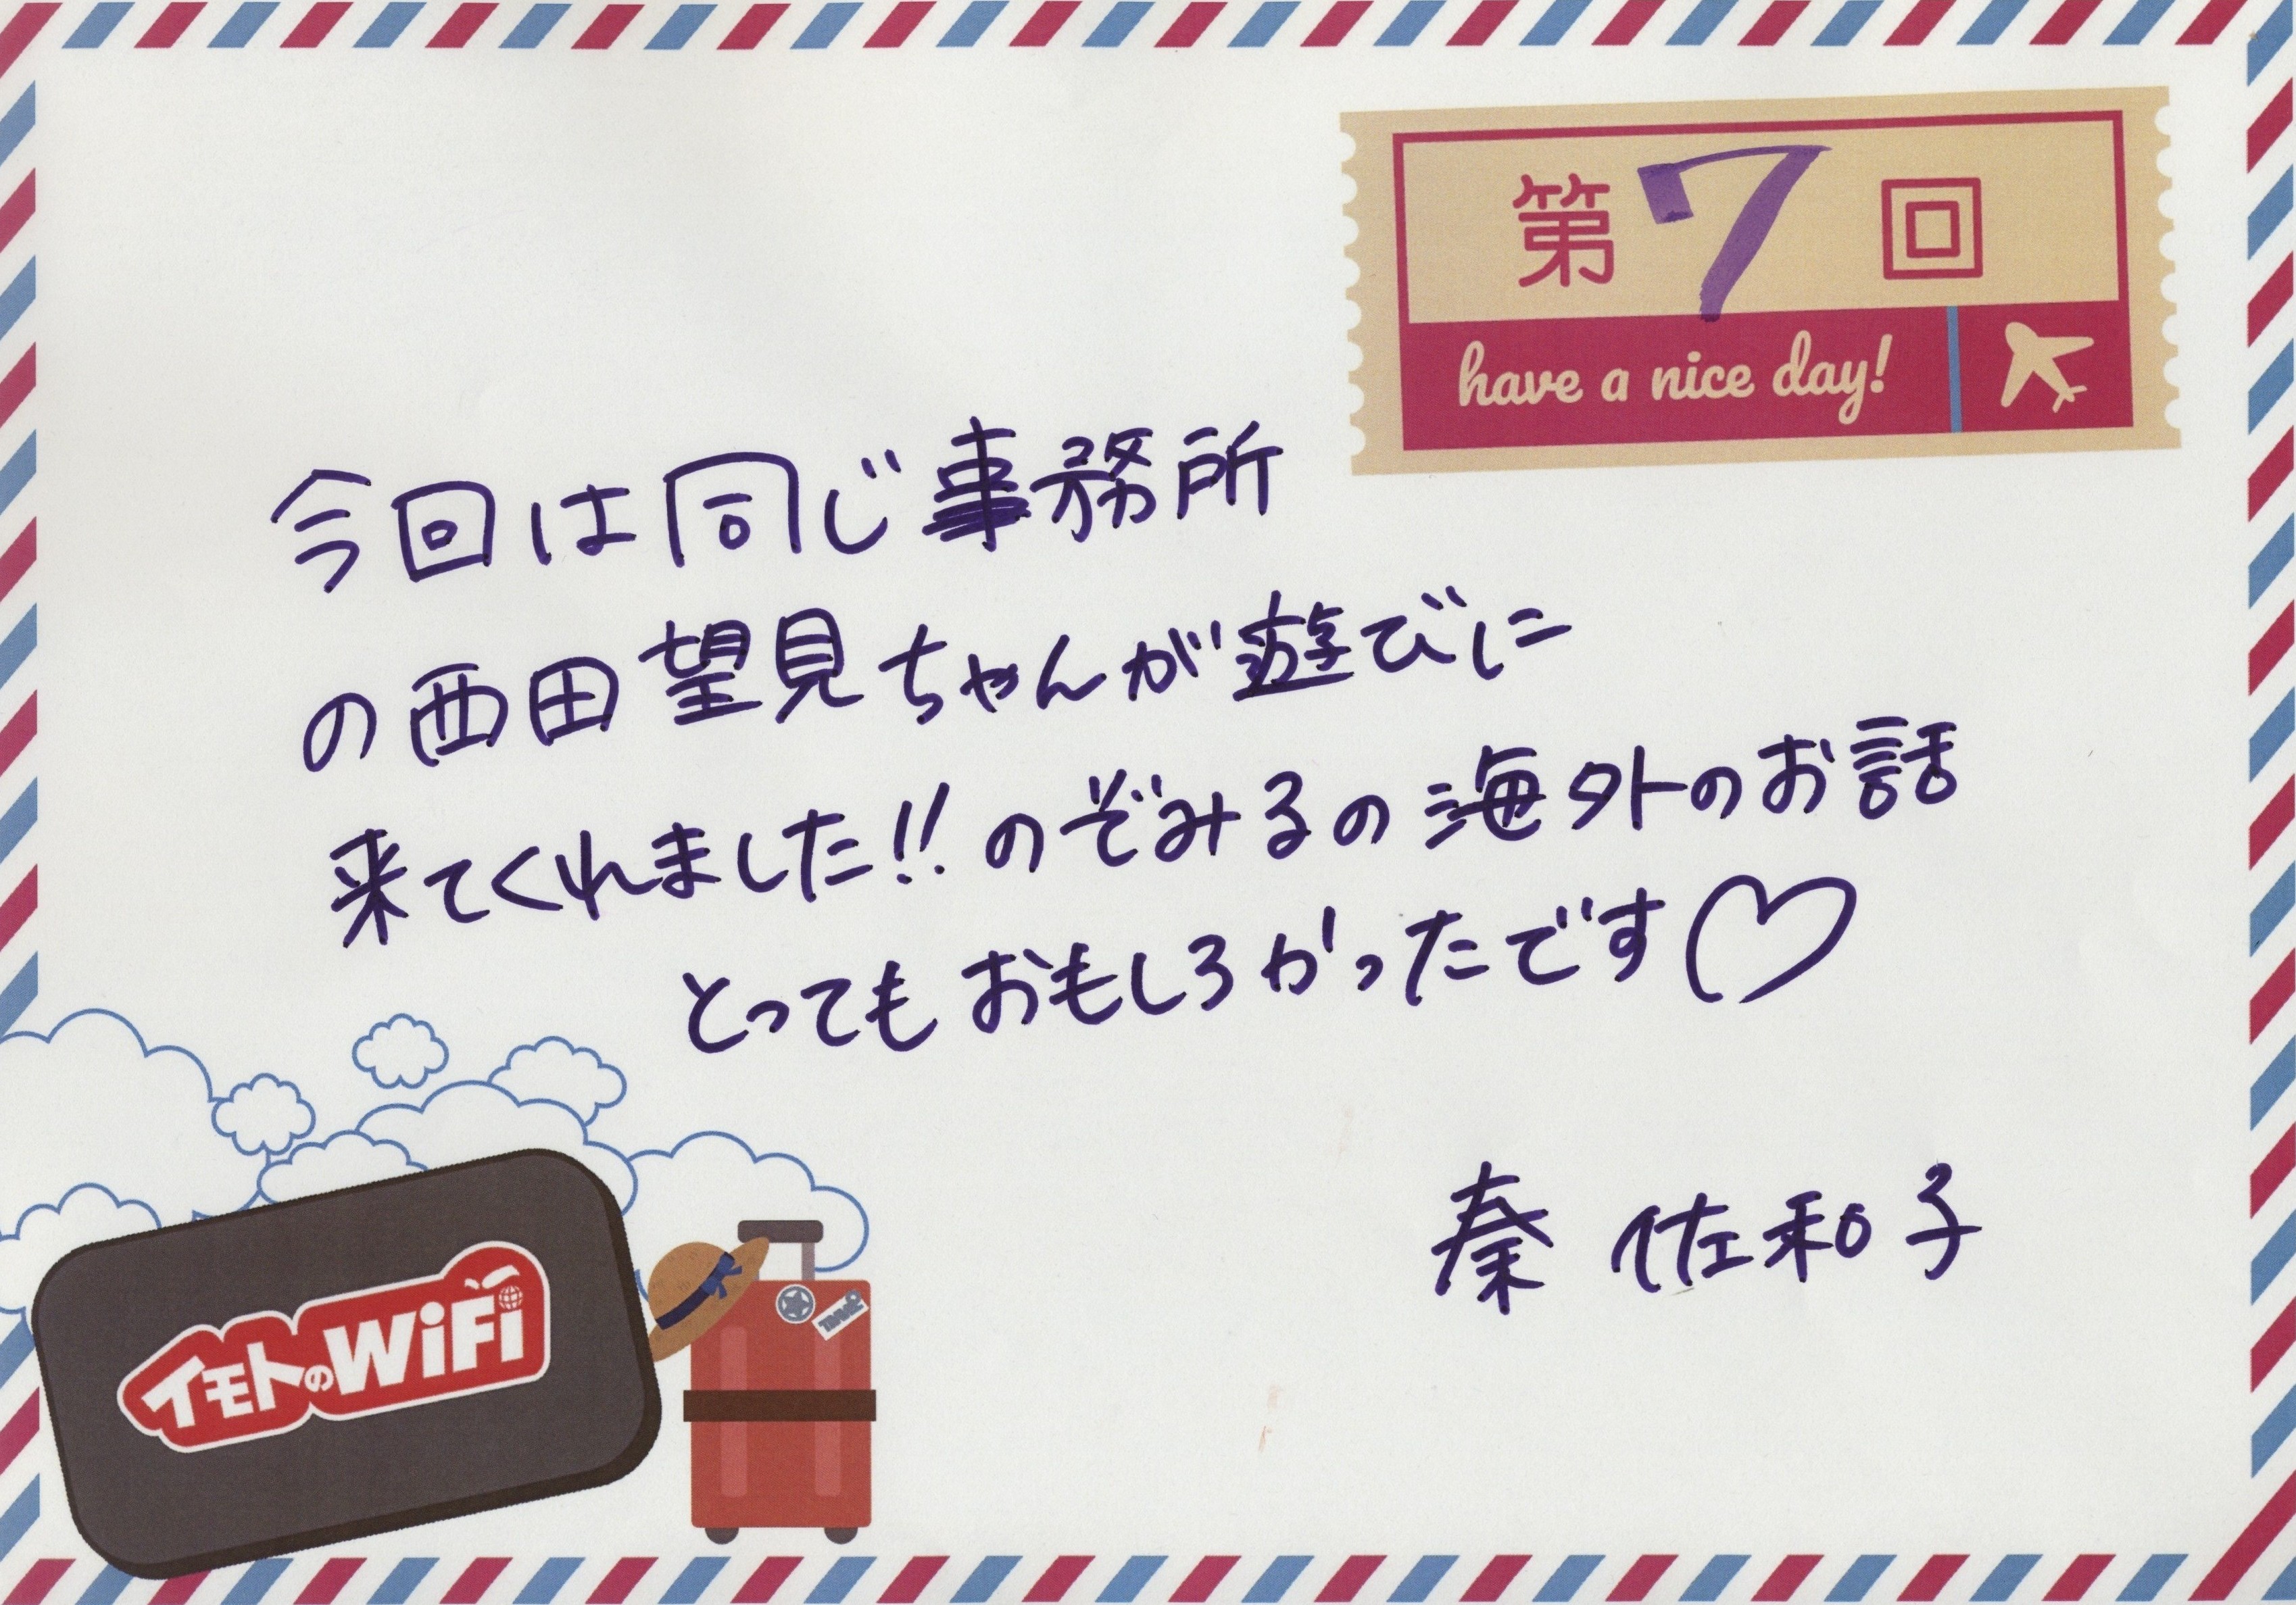 第7回
have a nice day!
今回は同じ事務所
の西田望見ちゃんが遊びに
来てくれました!!のぞみるの海外のお話
とってもおもしろかったです♡
秦 佐和子
イモトのWiFi